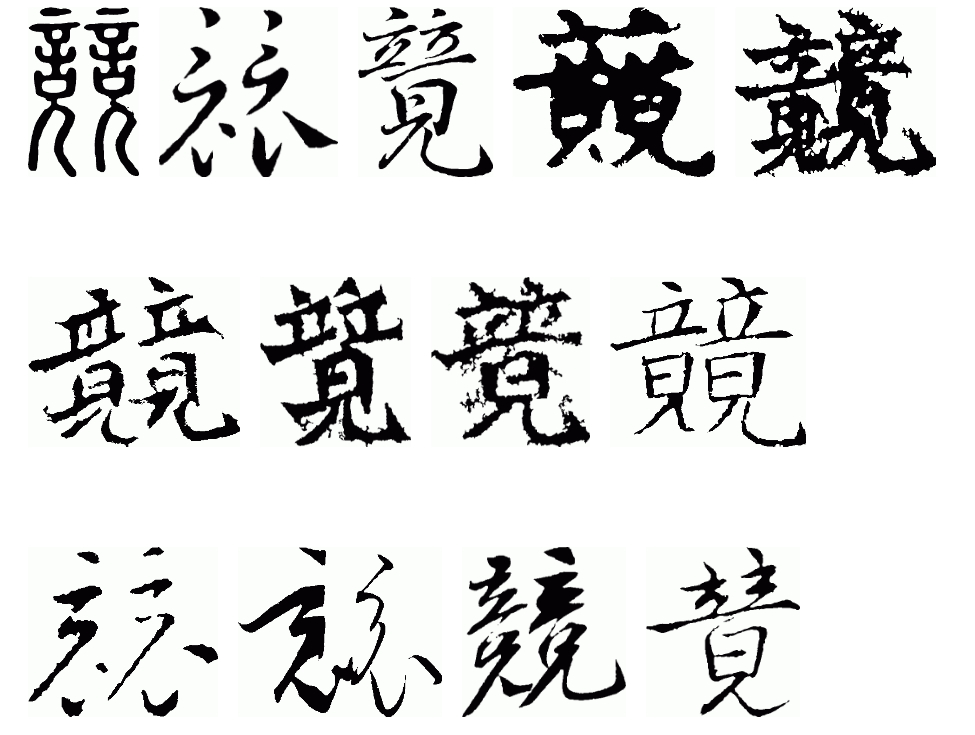 競競競競競
競競競競
競競競競